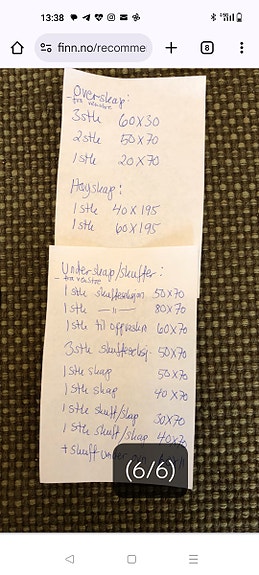 13:38
finn.no/recomme
8
Overskap:
- fra venstre
3stk 60x30
2stk 50x70
1stk 20x70
Høyskap:
1stk 40x195
1stk 60x195
Underskap/skuffer:
- fra venstre
1stk skuffeseksjon 50x70
1stk —"— 80x70
1stk til oppvaskm 60x70
3stk skuffeseksj. 50x70
1stk skap 50x70
1stk skap 40x70
1stk skuff/skap 30x70
1stk skuff/skap 40x70
+ skuff under
(6/6)